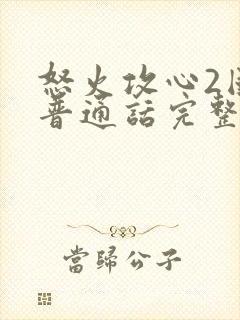 怒火攻心2
普通話完整
當歸公子